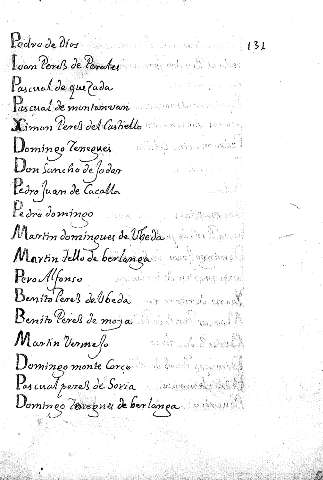 Pedro de Dios 131
Ioan Peres de Perales
Pascual de quesada
Pascual de montanuan
Ximon Peres del Castiello
Domingo Teneguei
Don Sancho de Jodar
Pedro Juan de Cacalla
Pedro domingo
Martin domingues de Ubeda
Martin Tello de berlanga
Pero Alfonso
Benito Peres de Ubeda
Benito Peres de moya
Martin Vermejo
Domingo monte Corço
Pascual peres de Soria
Domingo de berlanga